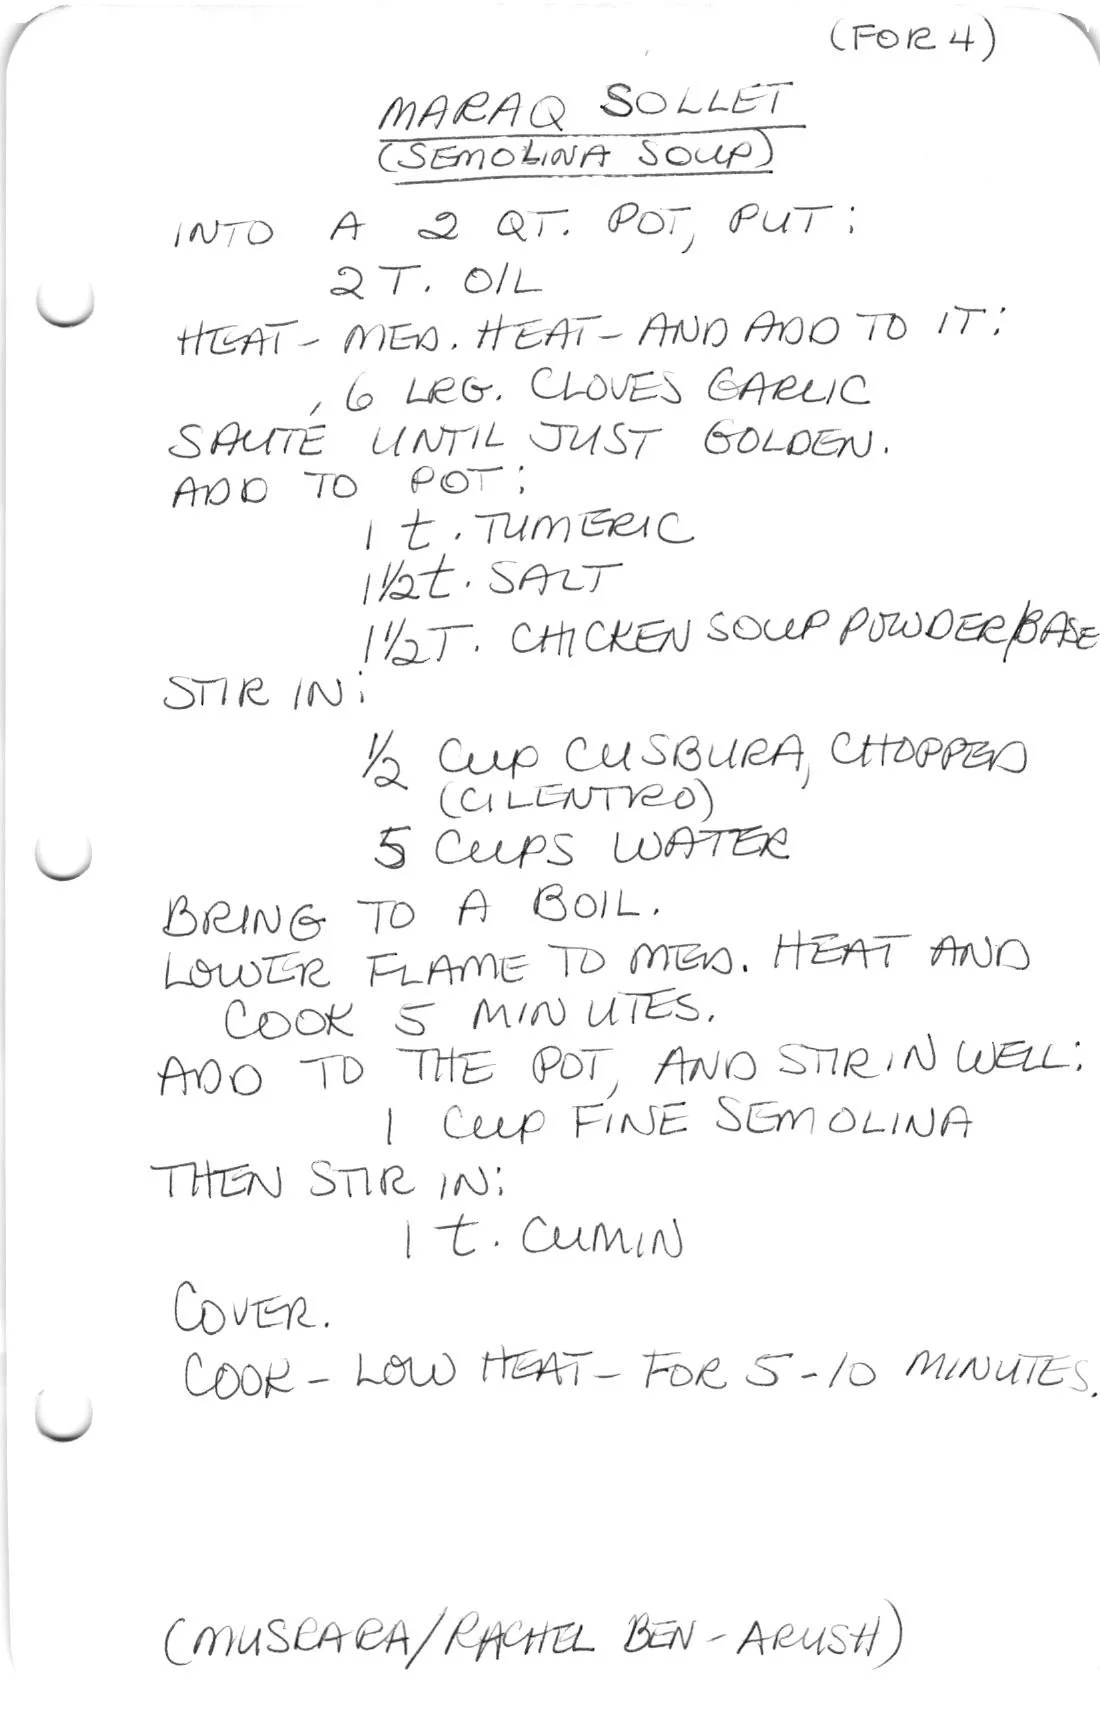 (FOR 4)
MARAQ SOLLET
(SEMOLINA SOUP)
INTO A 2 QT. POT, PUT:
2 T. OIL
HEAT - MED. HEAT - AND ADD TO IT:
6 LRG. CLOVES GARLIC
SAUTÉ UNTIL JUST GOLDEN.
ADD TO POT:
1 t. TUMERIC
1 1/2 t. SALT
1 1/2 T. CHICKEN SOUP POWDER/BASE
STIR IN:
1/2 CUP CUSBURA, CHOPPED
(CILENTRO)
5 CUPS WATER
BRING TO A BOIL.
LOWER FLAME TO MED. HEAT AND
COOK 5 MINUTES.
ADD TO THE POT, AND STIR IN WELL:
1 CUP FINE SEMOLINA
THEN STIR IN:
1 t. CUMIN
COVER.
COOK - LOW HEAT - FOR 5 - 10 MINUTES.
(MUSRARA/RACHEL BEN - ARUSH)